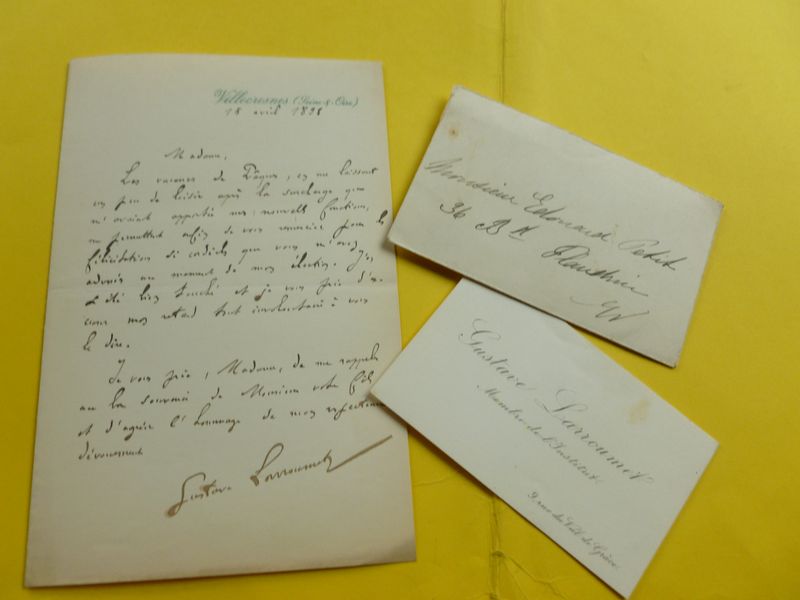 Villecresnes (Seine & Oise)
18 avril 1898
Madame,
Les vacances de Pâques, en me laissant
un peu de loisir après la surcharge que
m'avaient apportée mes nouvelles fonctions,
me permettent enfin de vous remercier pour les
félicitations si cordiales que vous m'avez
adressées au moment de mon élection. J'en
ai été bien touché et je vous prie d'ex-
cuser mon retard tout involontaire à vous
le dire.
Je vous prie, Madame, de me rappeler
au bon souvenir de Monsieur votre fils
et d'agréer l'hommage de mon respectueux
dévouement
Gustave Larroumet
Monsieur Edouard Petit
36 Bd
Gustave Larroumet
Membre de l'Institut
9, rue du Val de Grâce